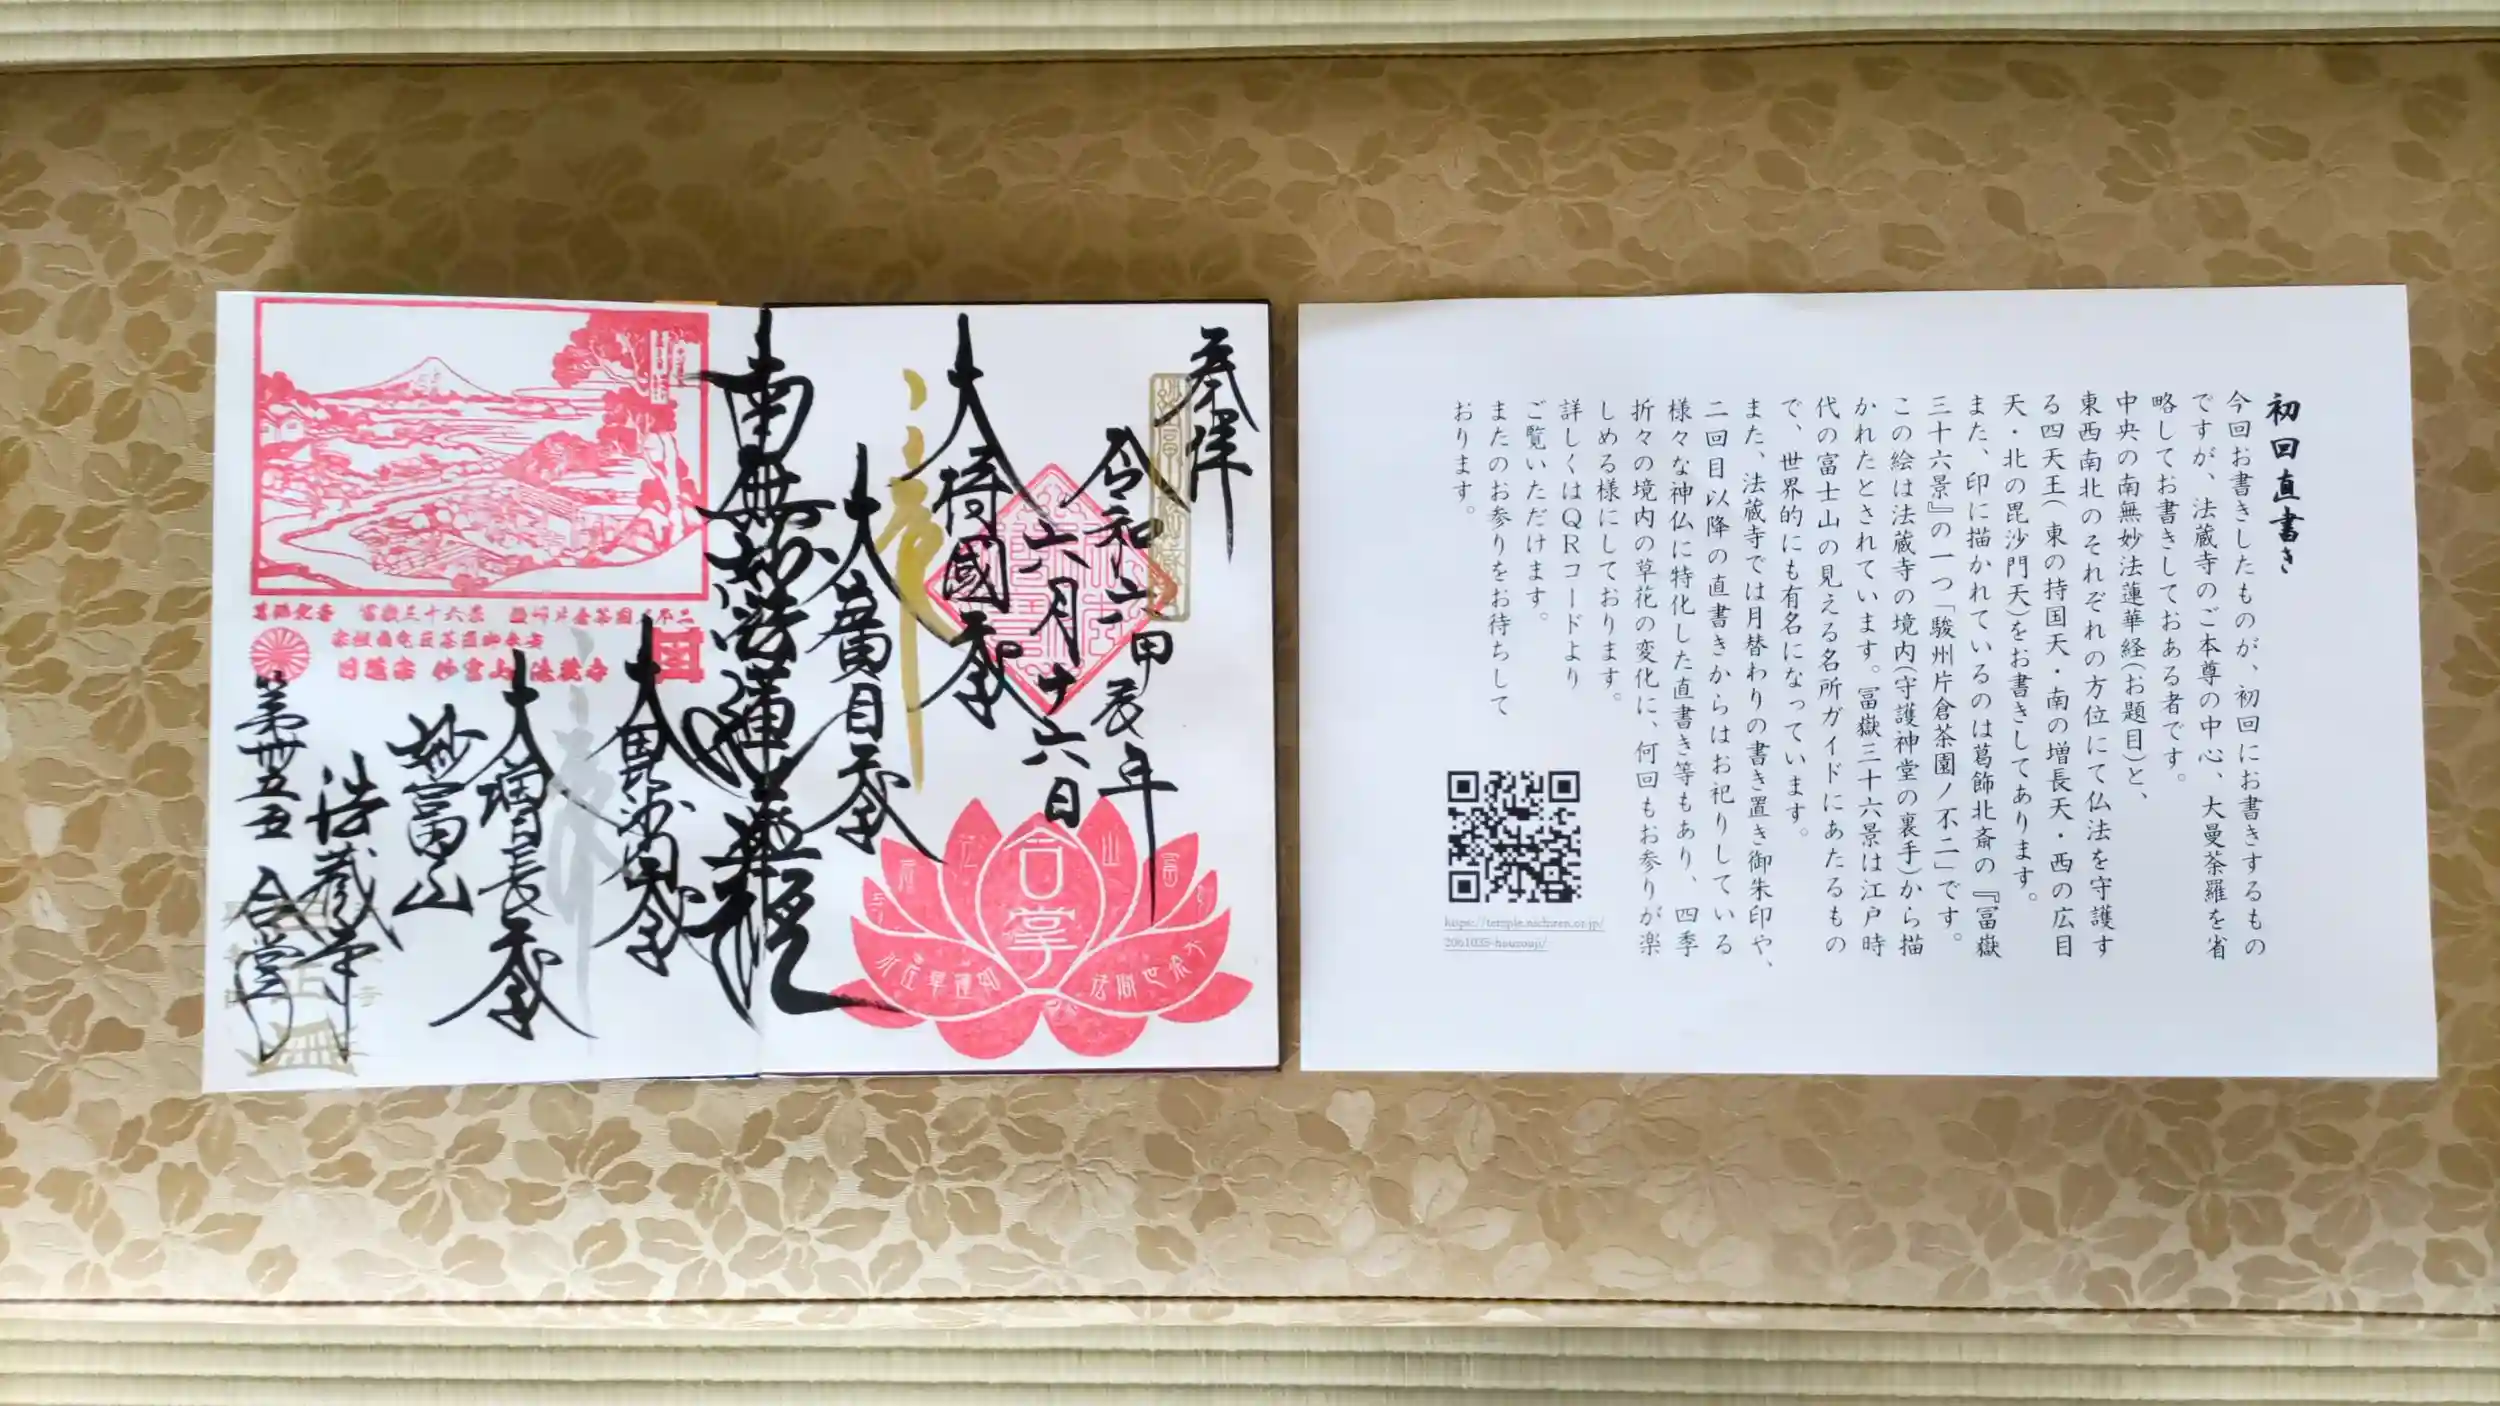 初回直書き
今回お書きしたものが、初回にお書きするもの
ですが、法蔵寺のご本尊の中心、大曼荼羅を省
略してお書きしておある者です。
中央の南無妙法蓮華経(お題目)と、
東西南北のそれぞれの方位にて仏法を守護す
る四天王(東の持国天・南の増長天・西の広目
天・北の毘沙門天)をお書きしてあります。
また、印に描かれているのは葛飾北斎の『冨嶽
三十六景』の一つ「駿州片倉茶園ノ不二」です。
この絵は法蔵寺の境内(守護神堂の裏手)から描
かれたとされています。冨嶽三十六景は江戸時
代の富士山の見える名所ガイドにあたるもの
で、世界的にも有名になっています。
また、法蔵寺では月替わりの書き置き御朱印や、
二回目以降の直書きからはお祀りしている
様々な神仏に特化した直書き等もあり、四季
折々の境内の草花の変化に、何回もお参りが楽
しめる様にしております。
詳しくはQRコードより
ご覧いただけます。
またのお参りをお待ちして
おります。
https://temple.nichiren.or.jp/
2061035-houzouji/
奉拝
令和六甲辰年
六月十六日
大持國天
大廣目天
南無妙法蓮華経
大毘沙門天
大増長天
妙富山
法蔵寺
第卅五
合掌
合掌
葛飾北斎 冨嶽三十六景 駿州片倉茶園ノ不二
日蓮宗 妙富山 法蔵寺